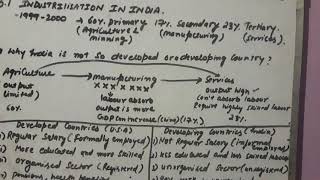 .1 INDUSTRILISATION IN INDIA.
-1999-2000 → 60%. primary 17%. Secondary 23%. Tertiary.
(Agriculture & minning) (manufacturing) (services).
why India is not so developed or developing country?
Agriculture → manufacturing → Services
Output limited) xxxxxxx output high
labour absorb can't absorb labour
60%. Output is more require highly skilled labour
GDP can increase (17%) 23%.
Developed Countries (U.S.A) Developing Countries (India)
1) Regular Salary (Formally employed) 1) Not Regular Salary (informal employed)
More educated and more skilled less educated and less skilled labour
organised Sector (Registered) unorganised Sector (unregistered)
pensions, health